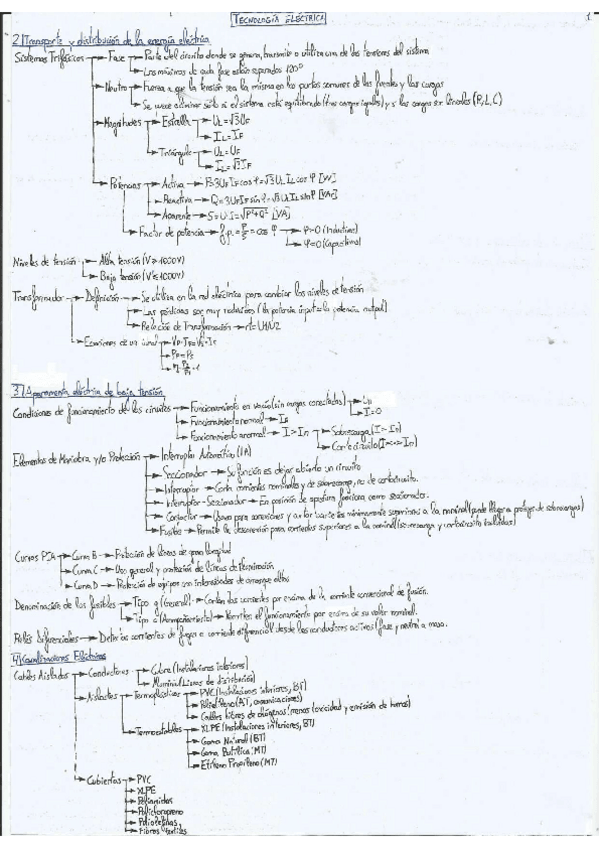 TECNOLOGÍA ELÉCTRICA
1
2. Transporte y distribución de la energía eléctrica
Sistemas Trifásicos → Fase → Parte del circuito donde se genera, transmite o utiliza una de las tensiones del sistema
→ Los máximos de cada fase están separados 120°
→ Neutro → Fuerza a que la tensión sea la misma en los puntos comunes de las fuentes y las cargas
→ Se puede eliminar solo si el sistema está equilibrado (tres cargas iguales) y si las cargas son lineales (R, L, C)
→ Magnitudes → Estrella → UL=√3UF
→ IL=IF
→ Triángulo → UL=UF
→ IL=√3IF
→ Potencias → Activa → P=3UFIFcosφ=√3ULILcosφ [W]
→ Reactiva → Q=3UFIFsinφ=√3ULILsinφ [VAr]
→ Aparente → S=U·I=√P²+Q² [VA]
→ Factor de potencia → f.p.=P/S=cosφ → φ>0 (Inductiva)
→ φ=0 (Capacitiva)
Niveles de tensión → Alta tensión (V>1000V)
→ Baja tensión (V≤1000V)
Transformador → Definición → Se utiliza en la red eléctrica para cambiar los niveles de tensión
→ Las pérdidas son muy reducidas (la potencia input≈la potencia output)
→ Relación de Transformación → rt=U1/U2
→ Ecuaciones de un ideal → Vp·Ip=Vs·Is
→ Pp=Ps
3. Aparamenta eléctrica de baja tensión
Condiciones de funcionamiento de los circuitos → Funcionamiento en vacío (sin cargas conectadas) → Un
→ I=0
→ Funcionamiento normal → In
→ Funcionamiento anormal → I>In → Sobrecarga (I>In)
→ Cortocircuito (I>>In)
Elementos de Maniobra y/o Protección → Interruptor Automático (IA)
→ Seccionador → Su función es dejar abierto un circuito
→ Interruptor → Corta corrientes nominales y de sobrecarga, no de cortocircuito.
→ Interruptor-Seccionador → En posición de apertura funciona como seccionador.
→ Contactor → Usado para conexiones y cortar corrientes mínimamente superiores a la nominal (puede llegar a proteger de sobrecargas)
→ Fusible → Permite la desconexión para corrientes superiores a la nominal (sobrecarga y cortocircuito incluidas)
Curvas PIA → Curva B → Protección de líneas de gran longitud
→ Curva C → Uso general y protección de líneas de
→ Curva D → Protección de equipos con intensidades de arranque altas
Denominación de los fusibles → Tipo g (General) → Cortan las corrientes por encima de la corriente convencional de fusión.
→ Tipo a (Acompañamiento) → Permiten el funcionamiento por encima de su valor nominal.
Relés Diferenciales → Detectan corrientes de fuga o corriente diferencial desde los conductores activos (fase y neutro) a masa.
4. Canalizaciones Eléctricas
Cables Aislados → Conductores → Cobre (Instalaciones interiores)
→ Aluminio (Líneas de distribución)
→ Aislantes → Termoplásticos → PVC (Instalaciones interiores, BT)
→ Polietileno (AT, comunicaciones)
→ Cables libres de halógenos (menos toxicidad y emisión de humos)
→ Termoestables → XLPE (Instalaciones interiores, BT)
→ Goma Natural (BT)
→ Goma Butílica (MT)
→ Etileno Propileno (MT)
→ Cubiertas → PVC
→ XLPE
→ Poliamidas
→ Policloropreno
→ Poliolefinas
→ Fibras textiles